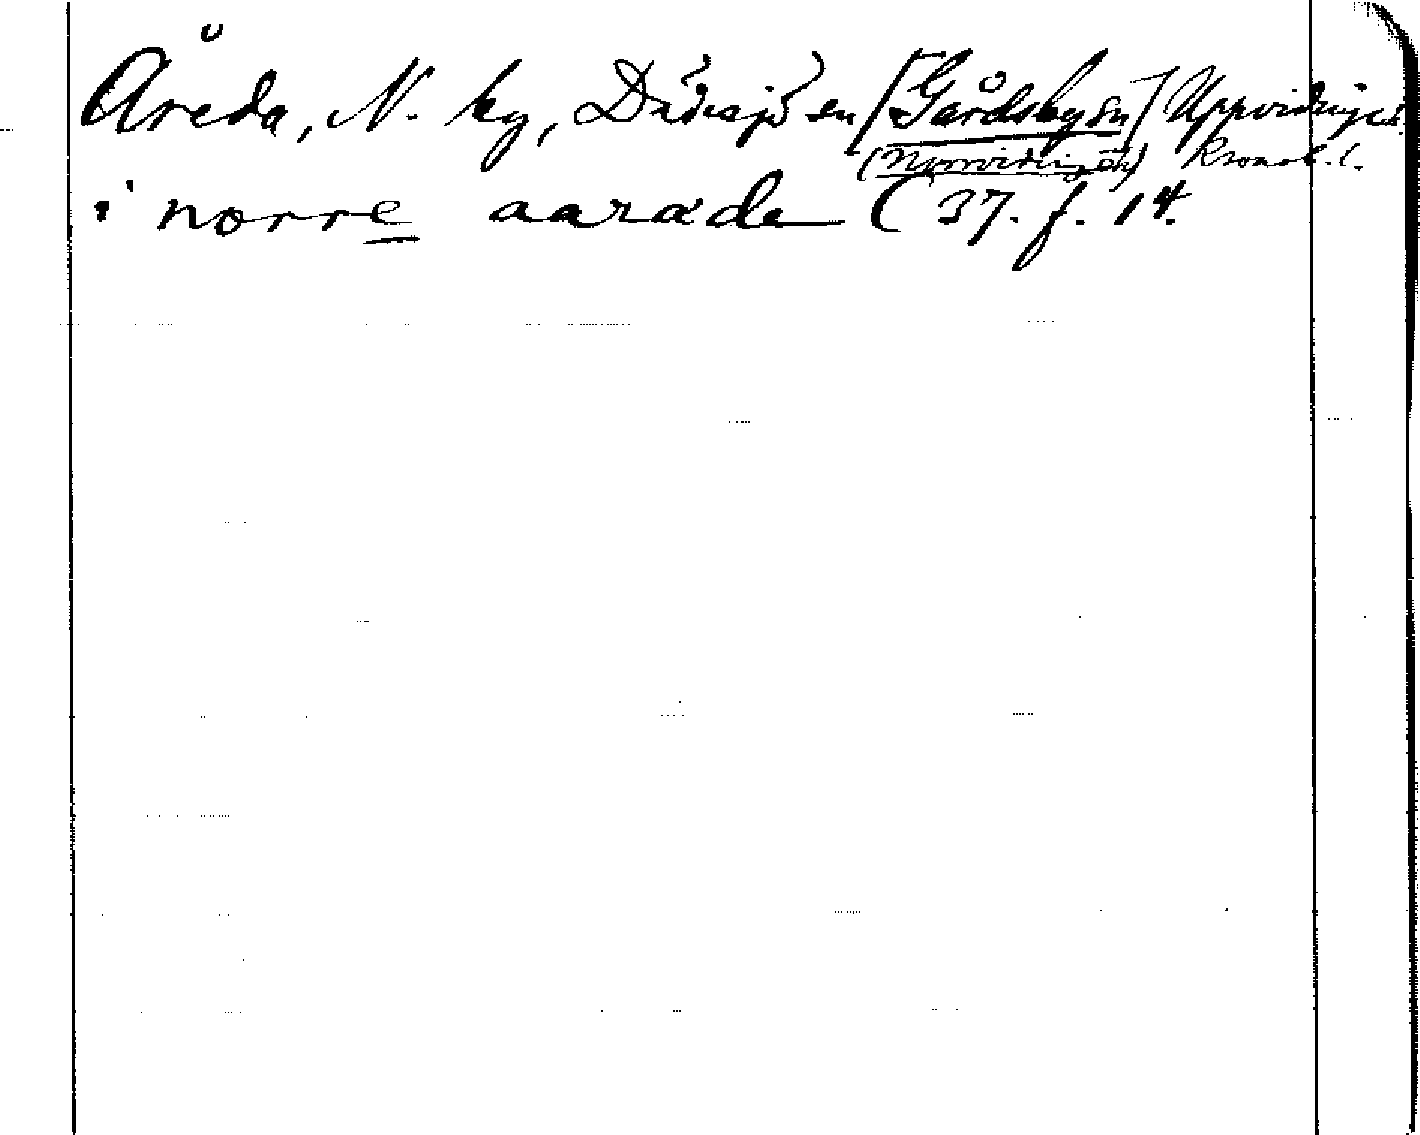 Åreda, N. by, Dädesjö sn [Gårdsby sn] Uppvidinge
(Norrvidinge h) Kronob. l.
i norre aarade ( 37. f. 14.